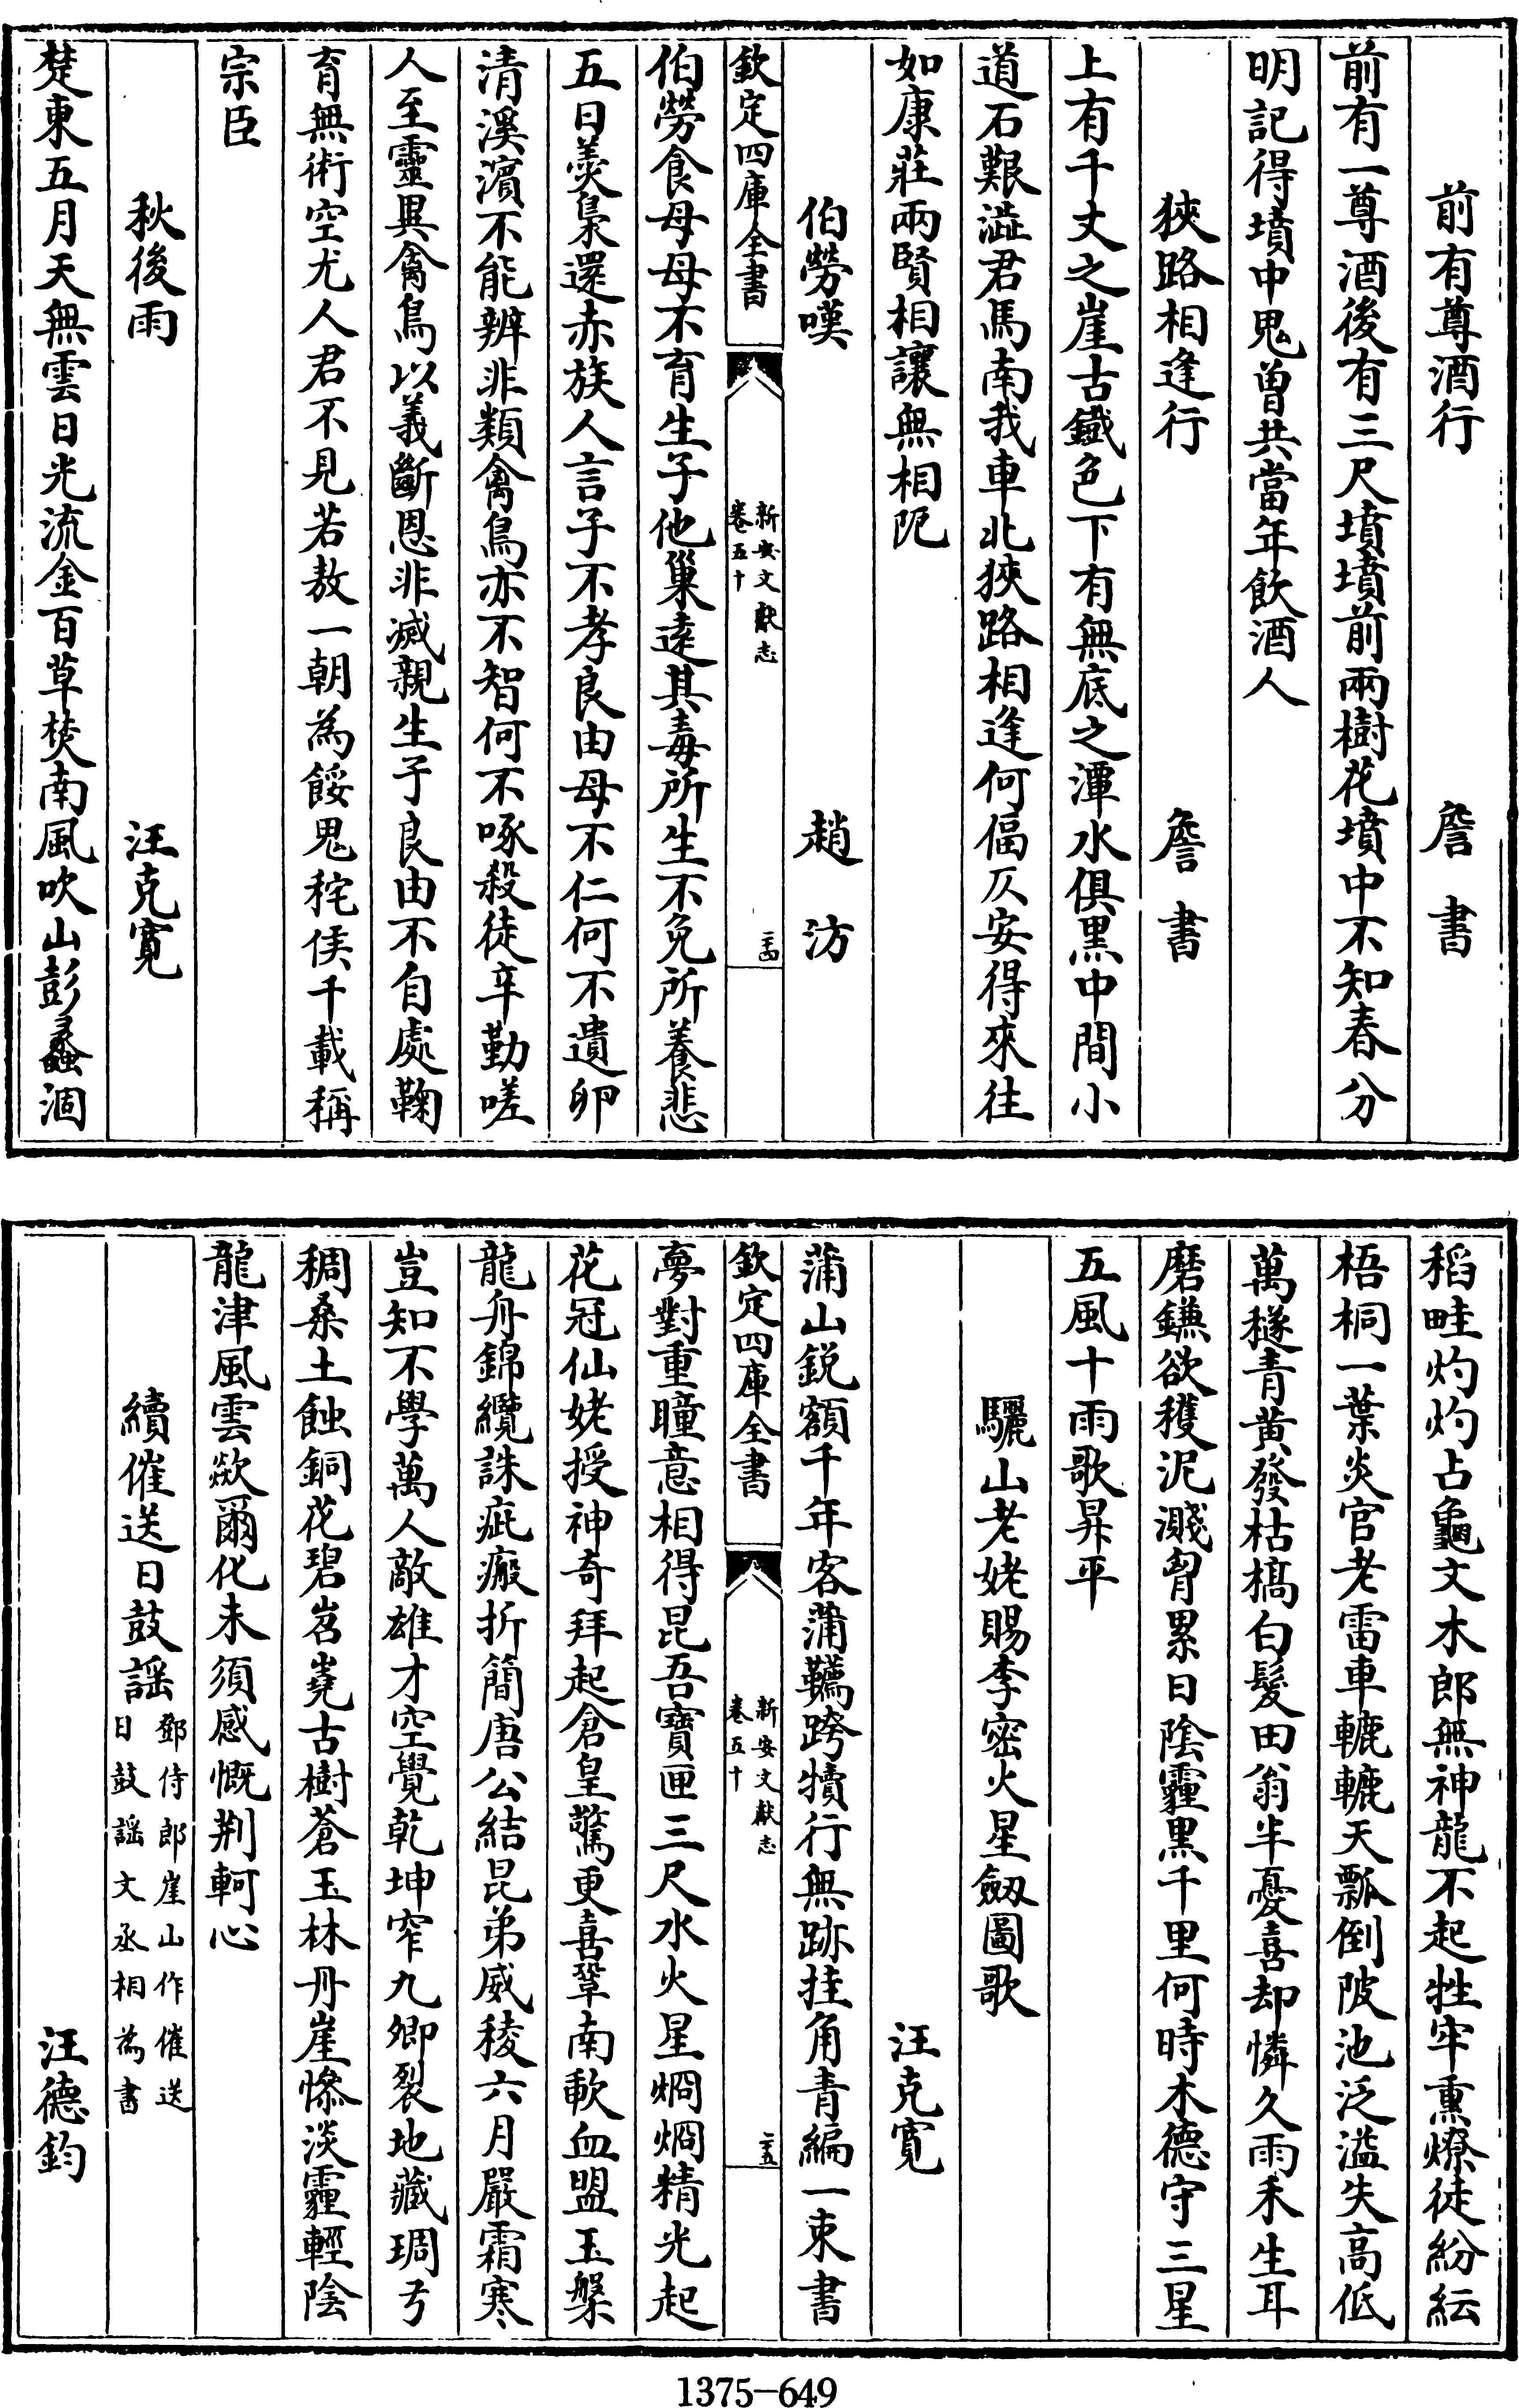 前有尊酒行　詹書
前有一尊酒後有三尺墳墳前兩樹花墳中不知春分
明記得墳中鬼曾共當年飲酒人
狹路相逢行　詹書
上有千丈之崖古鐵色下有無底之潭水俱黑中間小
道石艱澁君馬南我車北狹路相逢何偪仄安得來往
如康莊兩賢相讓無相阨
伯勞嘆　趙汸
欽定四庫全書
新安文獻志
卷五十
二十四
伯勞食母母不育生子他巢逺其毒所生不免所養悲
五日羮梟還赤族人言子不孝良由母不仁何不遺卵
清溪濱不能辨非類禽鳥亦不智何不啄殺徒辛勤嗟
人至靈異禽鳥以義斷恩非滅親生子良由不自處鞠
育無術空尤人君不見若敖一朝為餒鬼秺侯千載稱
宗臣
秋後雨　汪克寛
楚東五月天無雲日光流金百草焚南風吹山彭蠡涸
稻畦灼灼占龜文木郎無神龍不起牲牢熏燎徒紛紜
梧桐一葉炎官老雷車轆轆天瓢倒陂池泛溢失高低
萬穟青黄發枯槁白髮田翁半憂喜却憐久雨禾生耳
磨鎌欲穫泥濺胷累日陰霾黒千里何時木德守三星
五風十雨歌昇平
驪山老姥賜李密火星劔圖歌
汪克寛
蒲山鋭額千年客蒲韉跨犢行無跡挂角青編一束書
欽定四庫全書
新安文獻志
卷五十
二十五
夢對重瞳意相得昆吾寶匣三尺水火星烱烱精光起
花冠仙姥授神奇拜起倉皇驚更喜鞏南歃血盟玉槃
龍舟錦纜誅疵瘢折簡唐公結昆弟威稜六月嚴霜寒
豈知不學萬人敵雄才空覺乾坤窄九卿裂地藏琱弓
稠桑土蝕銅花碧岧嶤古樹蒼玉林丹崖慘淡霾輕陰
龍津風雲歘爾化未須感慨荆軻心
續催送日鼓謡鄧侍郎崖山作催送
日鼓謡文丞相為書
汪德鈞
1375-649